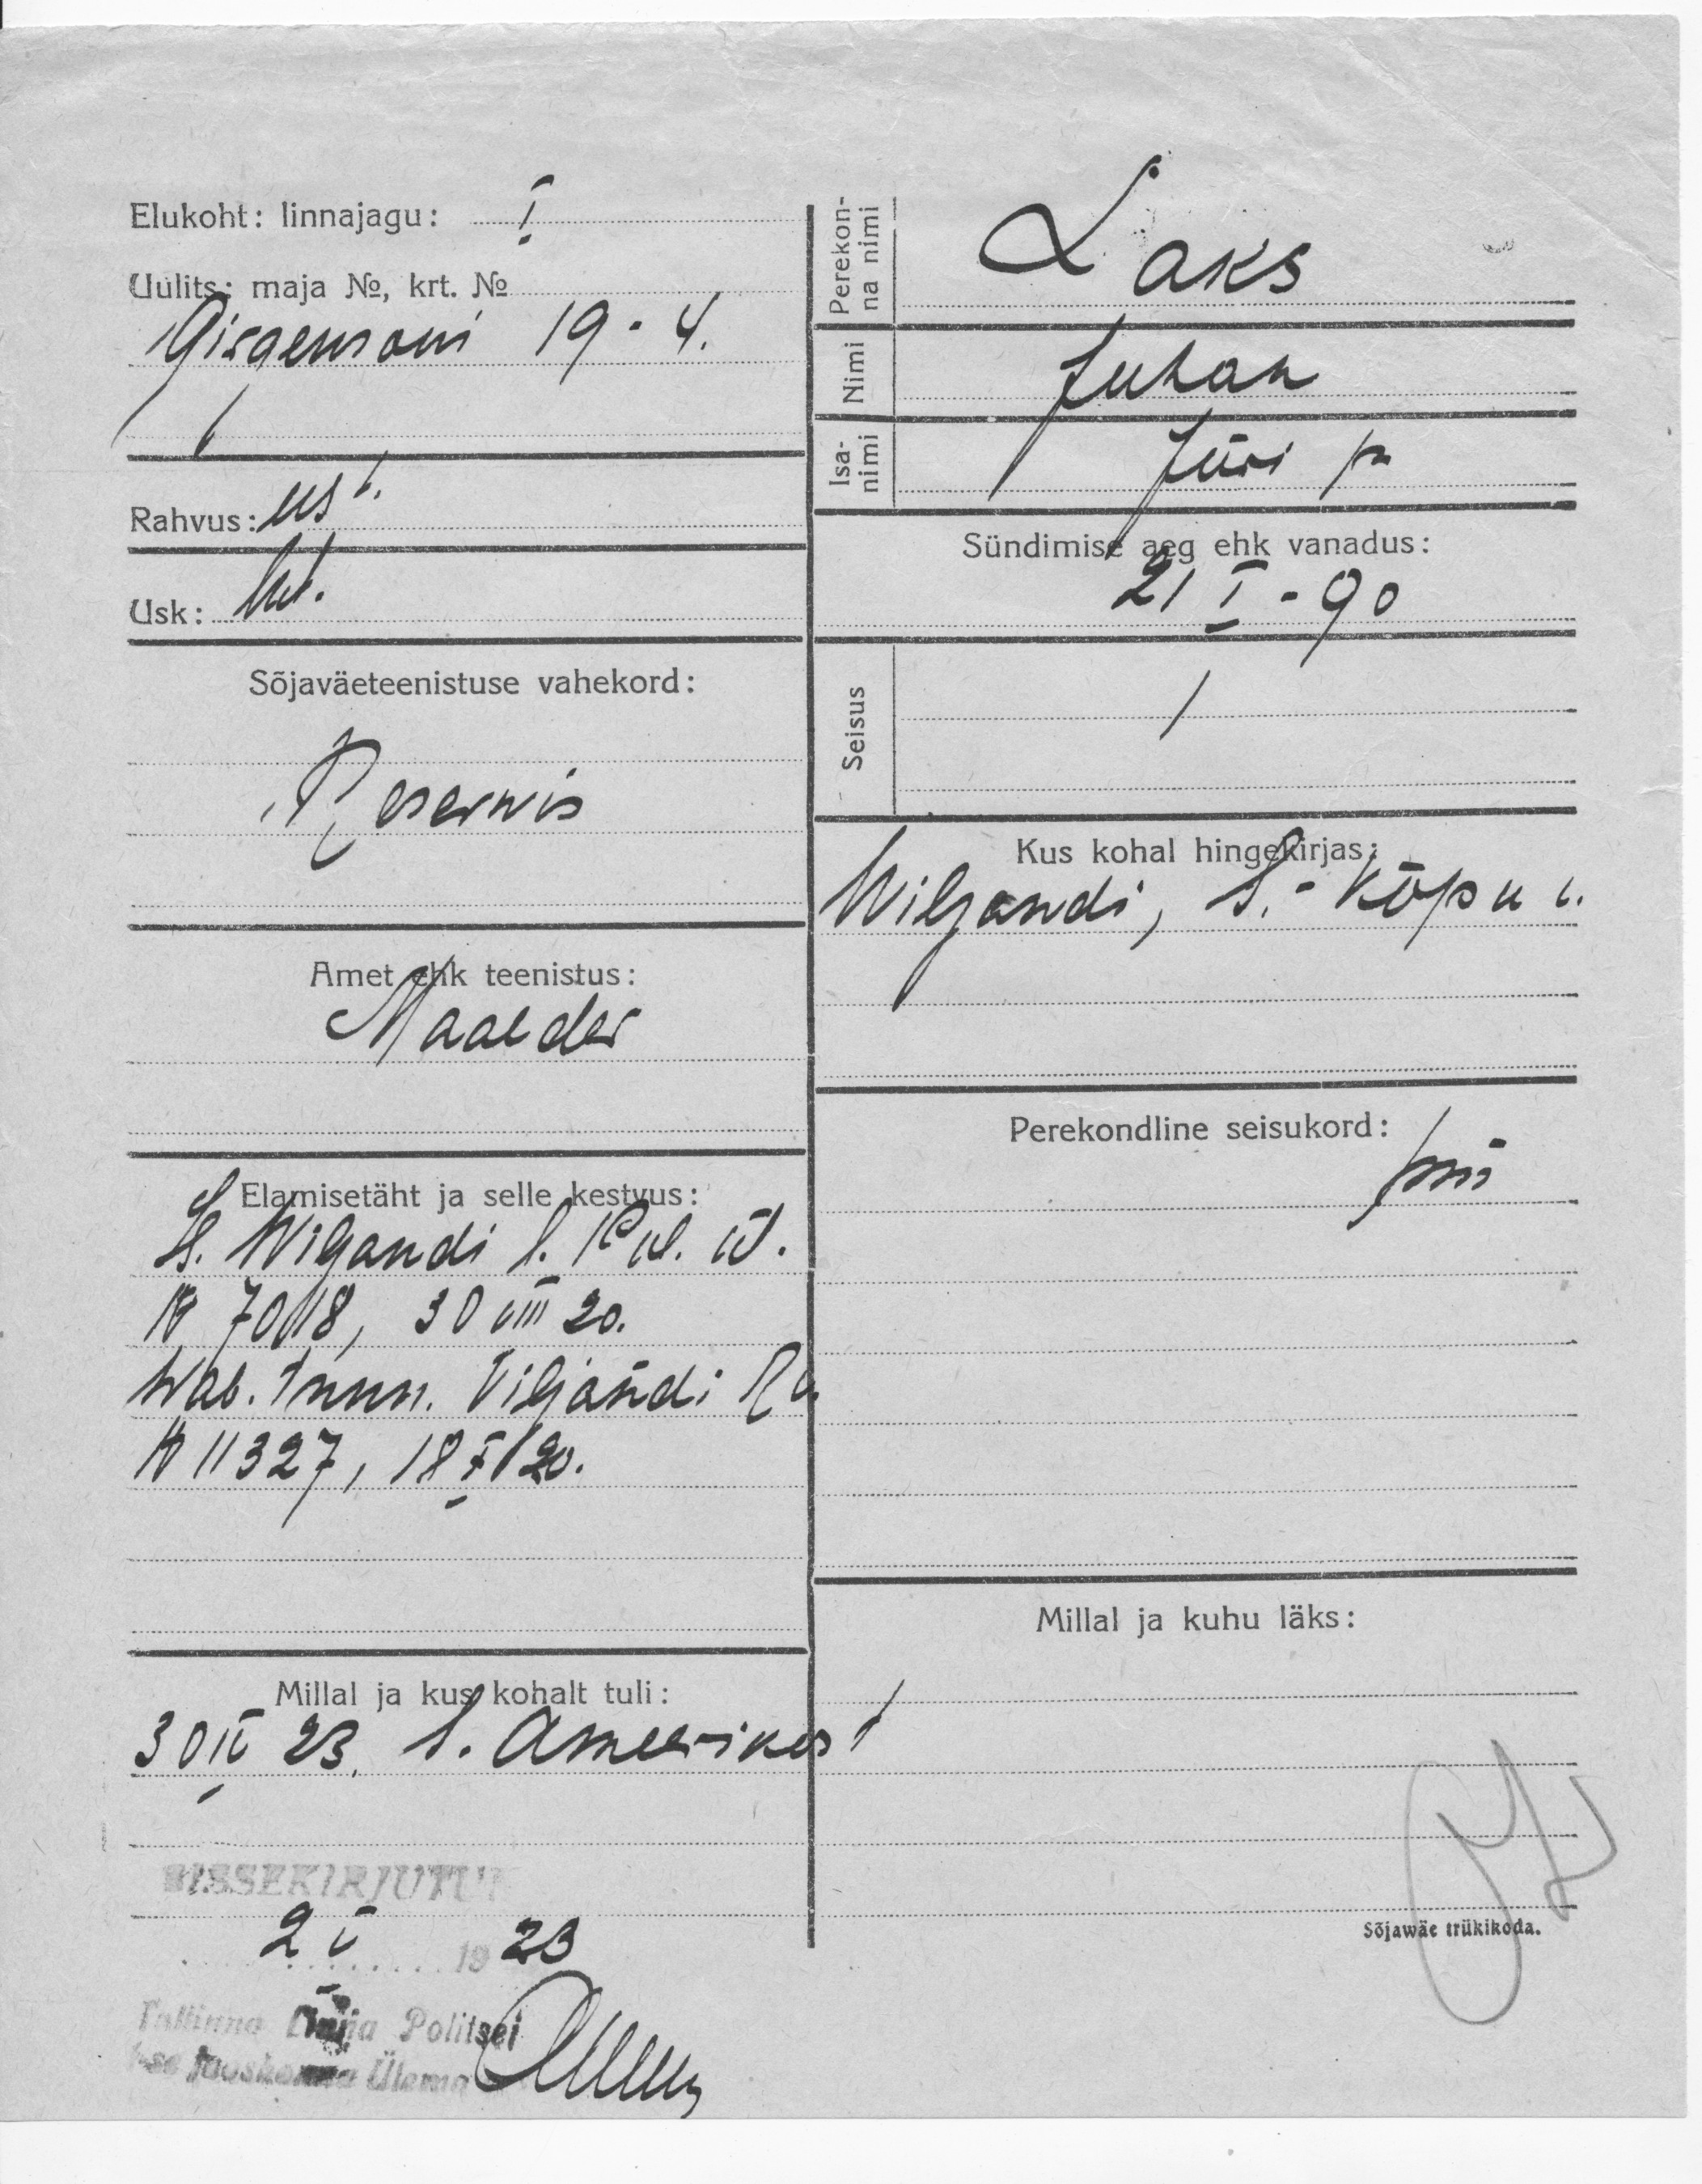 Elukoht: linnajagu: I
Uulits: maja №, krt. №
Girgensoni 19 - 4.
Rahvus: est.
Usk: lut.
Sõjaväeteenistuse vahekord:
Reservis
Amet ehk teenistus:
Maalder
Elamisetäht ja selle kestvus:
Wiljandi
№ 7018, 30 VIII 20.
Wab. tunn. Viljandi
№ 11327, 18 X 20.
Millal ja kus kohalt tuli:
30 IV 23. S. Ameerikast
SISSEKIRJUTUT
2 V 1923
Tallinna Linna Politsei
jaoskonna Ülema
Perekon-
na nimi
Laks
Nimi
Juhan
Isa-
nimi
Jüri p.
Sündimise aeg ehk vanadus:
21 I - 90
Seisus
/
Kus kohal hingekirjas:
Wiljandi, S.-Kõpu v.
Perekondline seisukord:
Millal ja kuhu läks:
Sõjawäe trükikoda.